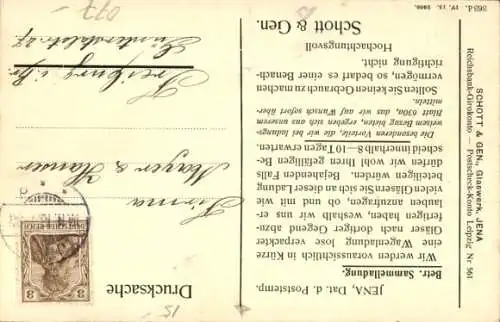 363d. 17. 12. 1909.
SCHOTT & GEN., Glaswerk, JENA
Reichsbank-Girokonto — Postscheck-Konto Leipzig Nr 561
JENA, Dat. d. Poststemp.
Betr. Sammelladung.
Wir werden voraussichtlich in Kürze
eine Wagenladung lose verpackter
Gläser nach dortiger Gegend abzu-
fertigen haben, weshalb wir uns er-
lauben anzufragen, ob und mit wie
vielen Gläsern Sie sich an dieser Ladung
beteiligen würden. Bejahenden Falls
dürfen wir wohl Ihren gefälligen Be-
scheid innerhalb 8—10 Tagen erwarten.
Die besonderen Vorteile, die wir bei ladungs-
weisem Bezug bieten, ergeben sich aus unserem
Blatt 630a, das wir auf Wunsch sofort über-
mitteln.
Sollten Sie keinen Gebrauch zu machen
vermögen, so bedarf es einer Benach-
richtigung nicht.
Hochachtungsvoll
Schott & Gen.
Drucksache
Firma
Mayer & Hauser
Freiburg i/Br.
DEUTSCHES REICH
3 3